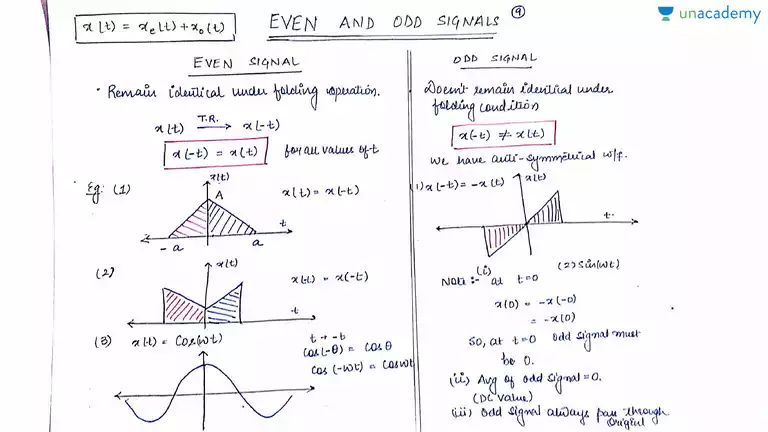 x(t) = xe(t) + xo(t)
EVEN AND ODD SIGNALS
9
unacademy
EVEN SIGNAL
Remain identical under folding operation.
x(t) T.R. → x(-t)
x(-t) = x(t) for all values of t
Eg: (1)
x(t)
x(t) = x(-t)
A
t
-a
a
(2)
x(t)
x(t) = x(-t)
t
(3) x(t) = Cos(ωt)
t → -t
Cos(-θ) = Cosθ
Cos(-ωt) = Cosωt
ODD SIGNAL
Doesn't remain identical under
folding condition
x(-t) ≠ x(t)
We have anti-symmetrical w/f.
(1) x(-t) = -x(t)
x(t)
t
(2) Sin(ωt)
Note :- (i) at t=0
x(0) = -x(-0)
= -x(0)
So, at t=0 odd signal must
be 0.
(ii) Avg of odd signal = 0.
(DC value)
(iii) Odd signal always pass through